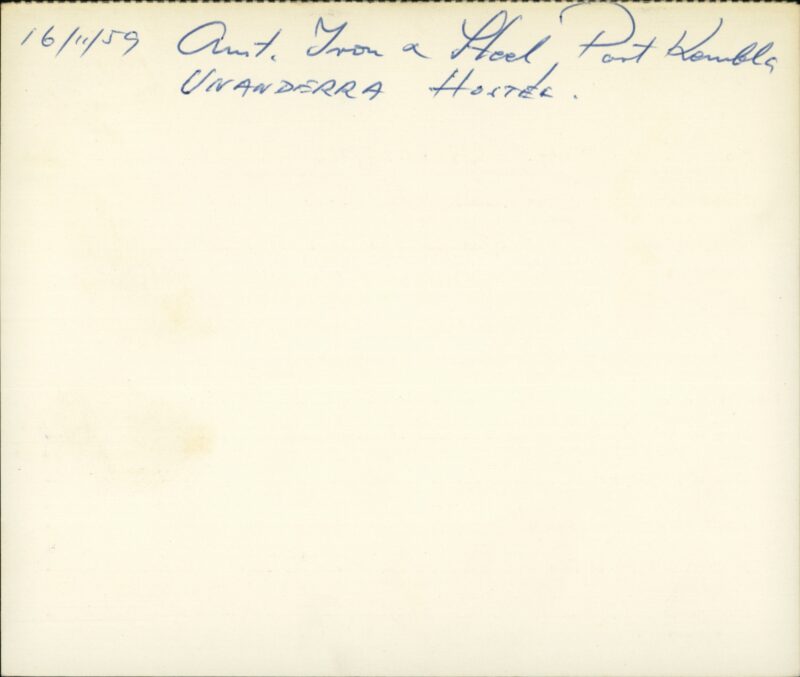 16/11/59 Aust. Iron & Steel, Port Kembla
UNANDERRA HOSTEL.